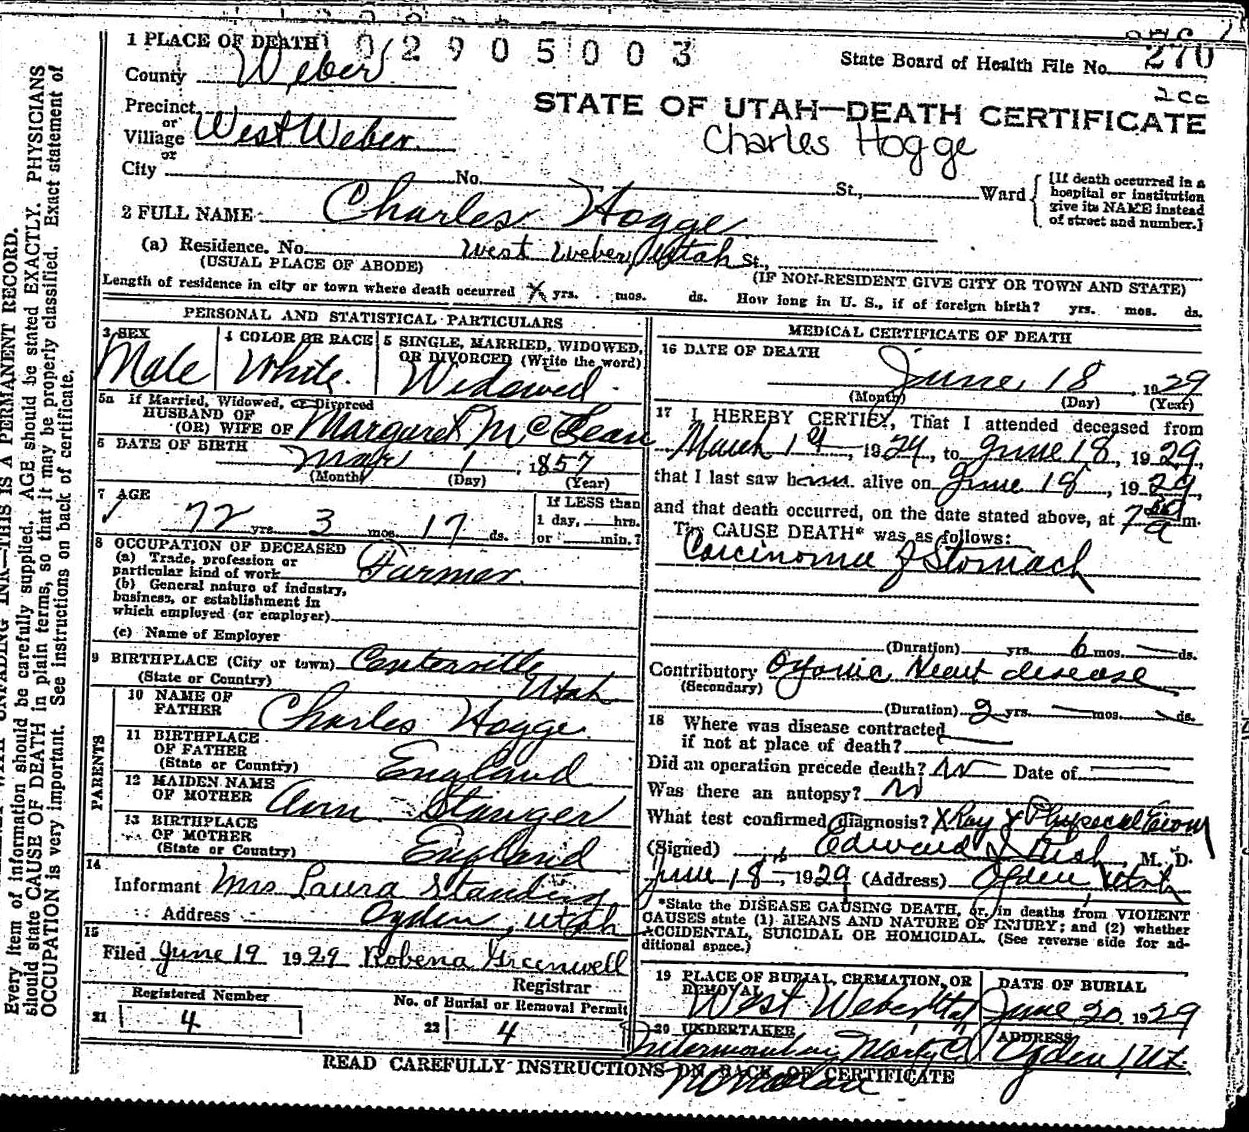 1 PLACE OF DEATH
1 0 2 9 0 5 0 0 3
State Board of Health File No. 270
County Weber
2cc
STATE OF UTAH—DEATH CERTIFICATE
Charles Hogge
Precinct
or
Village West Weber
or
City No. St., Ward
[If death occurred in a
hospital or institution
give its NAME instead
of street and number.]
2 FULL NAME Charles Hogge
(a) Residence. No. West Weber, Utah St.,
(USUAL PLACE OF ABODE) (IF NON-RESIDENT GIVE CITY OR TOWN AND STATE)
Length of residence in city or town where death occurred yrs. mos. ds. How long in U. S., if of foreign birth? yrs. mos. ds.
PERSONAL AND STATISTICAL PARTICULARS
3 SEX
Male
4 COLOR OR RACE
White.
5 SINGLE, MARRIED, WIDOWED,
OR DIVORCED (Write the word)
Widowed
5a If Married, Widowed, or Divorced
HUSBAND OF
(OR) WIFE OF Margaret McLean
6 DATE OF BIRTH
Mar 1, 1857
(Month) (Day) (Year)
7 AGE
72 yrs. 3 mos. 17 ds.
If LESS than
1 day, hrs.
or min.?
8 OCCUPATION OF DECEASED
(a) Trade, profession or
particular kind of work Farmer.
(b) General nature of industry,
business, or establishment in
which employed (or employer)
(c) Name of Employer
9 BIRTHPLACE (City or town) Centerville
(State or Country) Utah
PARENTS
10 NAME OF
FATHER Charles Hogge
11 BIRTHPLACE
OF FATHER
(State or Country) England
12 MAIDEN NAME
OF MOTHER Ann Stanger
13 BIRTHPLACE
OF MOTHER
(State or Country) England
14
Informant Mrs Laura
Address Ogden, Utah
15
Filed June 19 1929 Robena Greenwell
Registrar
Registered Number
21 4
No. of Burial or Removal Permit
22 4
MEDICAL CERTIFICATE OF DEATH
16 DATE OF DEATH
June 18, 1929
(Month) (Day) (Year)
17 I HEREBY CERTIFY, That I attended deceased from
March 1st, 1924, to June 18, 1929,
that I last saw him alive on June 18, 1929
and that death occurred, on the date stated above, at 7 a m.
The CAUSE DEATH* was as follows:
Carcinoma of Stomach
(Duration) yrs. 6 mos. ds.
Contributory Heart disease
(Secondary)
(Duration) 2 yrs. mos. ds.
18 Where was disease contracted
if not at place of death?
Did an operation precede death? no Date of
Was there an autopsy? no
What test confirmed diagnosis? X Ray & Physical Exam
(Signed) Edward I Rich, M. D.
June 18, 1929 (Address) Ogden, Utah
*State the DISEASE CAUSING DEATH, or, in deaths from VIOLENT
CAUSES state (1) MEANS AND NATURE OF INJURY; and (2) whether
ACCIDENTAL, SUICIDAL OR HOMICIDAL. (See reverse side for ad-
ditional space.)
19 PLACE OF BURIAL, CREMATION, OR
REMOVAL
West Weber, Utah
DATE OF BURIAL
June 20 1929
20 UNDERTAKER
ADDRESS
Ogden, Ut
READ CAREFULLY INSTRUCTIONS ON BACK OF CERTIFICATE
UNFADING INK—THIS IS A PERMANENT RECORD.
Every item of information should be carefully supplied. AGE should be stated EXACTLY. PHYSICIANS
should state CAUSE OF DEATH in plain terms, so that it may be properly classified. Exact statement of
OCCUPATION is very important. See instructions on back of certificate.